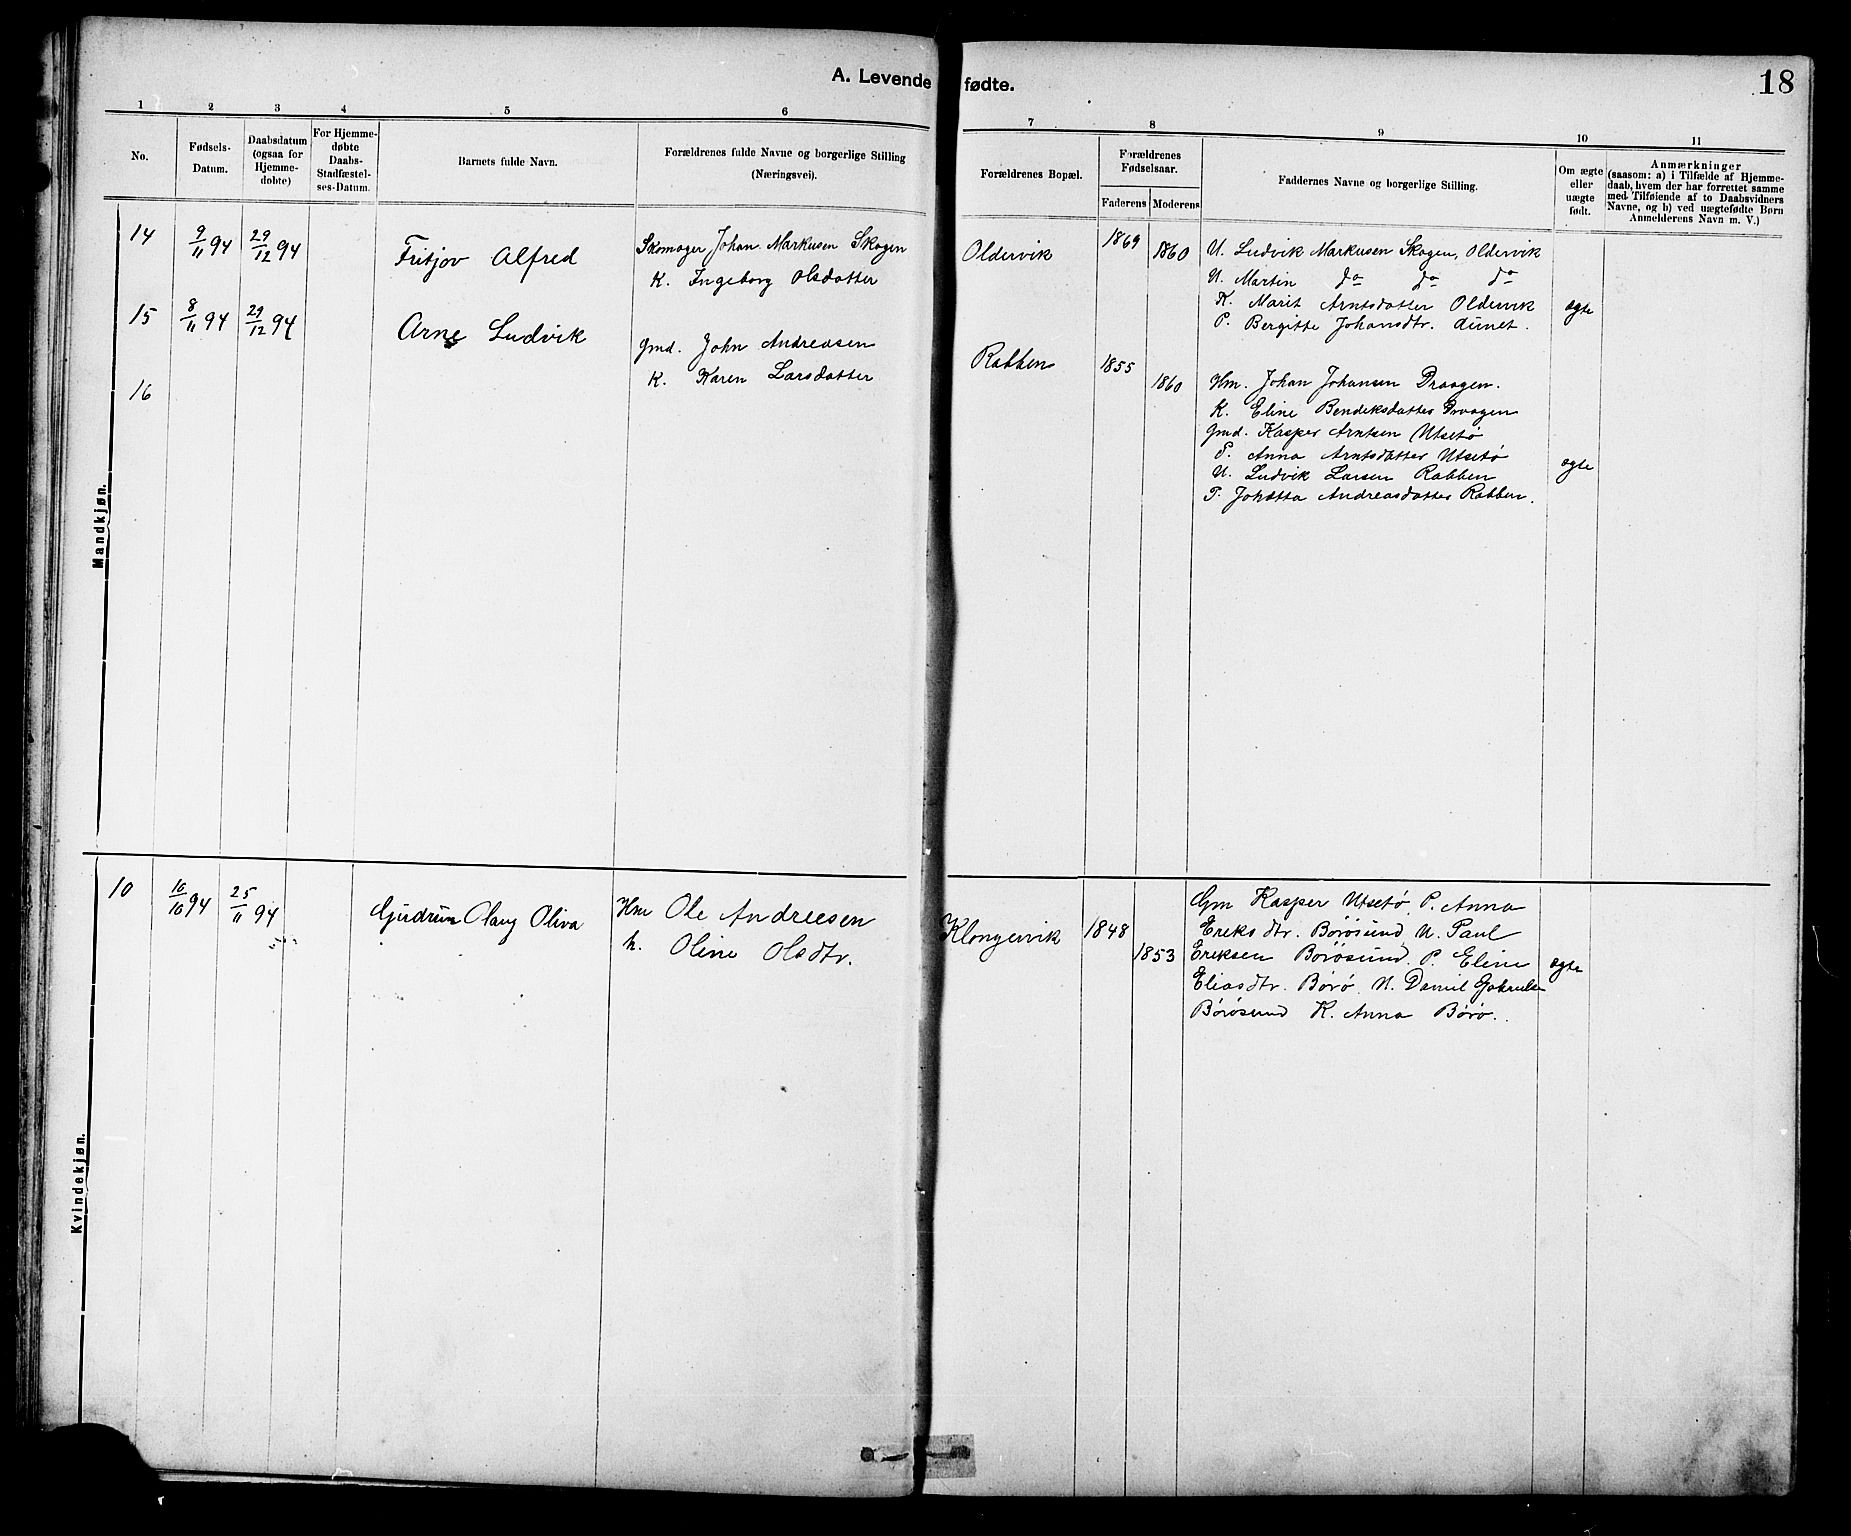 A. Levende fødte.
18
1 2 3 4 5 6 7 8 9 10 11
No.
Fødsels-
Datum.
Daabsdatum
(ogsaa for
Hjemme-
døbte)
For Hjemme-
døbte
Daabs-
Stadfæstel-
ses-Datum.
Barnets fulde Navn.
Forældrenes fulde Navne og borgerlige Stilling
(Næringsvei).
Forældrenes Bopæl.
Forældrenes
Fødselsaar.
Faderens Moderens
Faddernes Navne og borgerlige Stilling.
Om ægte
eller
uægte
født.
Anmærkninger
(saasom: a) i Tilfælde af Hjemme-
daab, hvem der har forrettet samme
med Tilføiende af to Daabsvidners
Navne, og b) ved uægtefødte Børn
Anmelderens Navn m. V.)
Mandkjøn.
14 9/11 94 29/12 94 Fritjov Alfred
Skomager Johan Markusen Skagen
K. Ingeborg Olsdatter
Oldervik 1869 1860
U. Ludvik Markusen Skagen, Oldervik
U. Martin do do do
K. Marit Arntsdatter Oldervik
P. Bergitte Johansdtr. Aunet.
ægte
15 8/11 94 29/12 94 Arne Ludvik
Gmd. John Andreasen
K. Karen Larsdatter
Rabben 1855 1860
Hm. Johan Johansen Draagen.
K. Eline Bendiksdatter Draagen
Gmd. Kasper Arntsen Utsetø
P. Anna Arntsdatter Utsetø
U. Ludvik Larsen Rabben
P. Andreasdatter Rabben.
ægte
16
Kvindekjøn.
10 10/10 94 25/11 94 Gudrun Olaug Oliva
Hm Ole Andreesen
k. Oline Olsdtr.
Klongervik 1848 1853
Gm Kasper Utsetø, P. Anna
Ereksdtr. Børøsund, U. Paul
Ereksen Børøsund. P. Eline
Eliasdtr. Børø. U. Daniel
Børøsund K. Anna Børø.
ægte